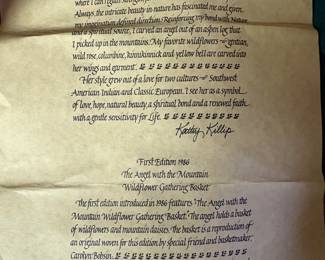 where I can
Always, the intricate beauty in nature has fascinated me and given
my imagination defined direction. Reinforcing my bond with Nature
and a spiritual source, I carved an angel out of an aspen log that
I picked up in the mountains. My favorite wildflowers - gentian,
wild rose, columbine, kinnikinnick and yellow bell are carved into
her wings and garment.
Her style grew out of a love for two cultures - Southwest
American Indian and Classic European. I see her as a symbol
of love, hope, natural beauty, a spiritual bond and a renewed faith
with a gentle sensitivity for Life.
Kathy Killip
First Edition 1986
The Angel with the Mountain
Wildflower Gathering Basket
The first edition introduced in 1986 features "The Angel with the
Mountain Wildflower Gathering Basket." The angel holds a basket
of wildflowers and mountain daisies. The basket is a reproduction of
an original woven for this edition by special friend and basketmaker,
Carolyn Bobsin.